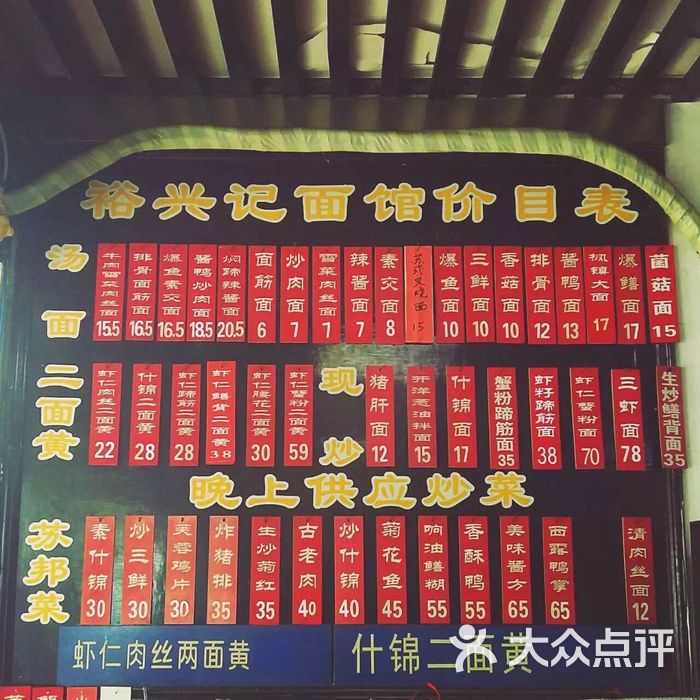 裕兴记面馆价目表
汤面
牛肉雪菜肉丝面 15.5
排骨面筋面 16.5
爆鱼素交面 16.5
酱鸭炒肉面 18.5
焖蹄辣酱面 20.5
面筋面 6
炒肉面 7
雪菜肉丝面 7
辣酱面 7
素交面 8
苏式叉烧面 15
爆鱼面 10
三鲜面 10
香菇面 10
排骨面 12
酱鸭面 13
枫镇大面 17
爆鳝面 17
菌菇面 15
二面黄
虾仁肉丝二面黄 22
什锦二面黄 28
虾仁蹄筋二面黄 28
虾仁鳝背二面黄 38
虾仁腰花二面黄 30
虾仁蟹粉二面黄 59
现炒
猪肝面 12
开洋葱油拌面 15
什锦面 17
蟹粉蹄筋面 35
虾籽蹄筋面 38
虾仁蟹粉面 70
三虾面 78
生炒鳝背面 35
晚上供应炒菜
苏邦菜
素什锦 30
炒三鲜 30
芙蓉鸡片 30
炸猪排 35
生炒菊红 35
古老肉 40
炒什锦 40
菊花鱼 45
响油鳝糊 55
香酥鸭 55
美味酱方 65
西露鸭掌 65
清肉丝面 12
虾仁肉丝两面黄
什锦二面黄
大众点评